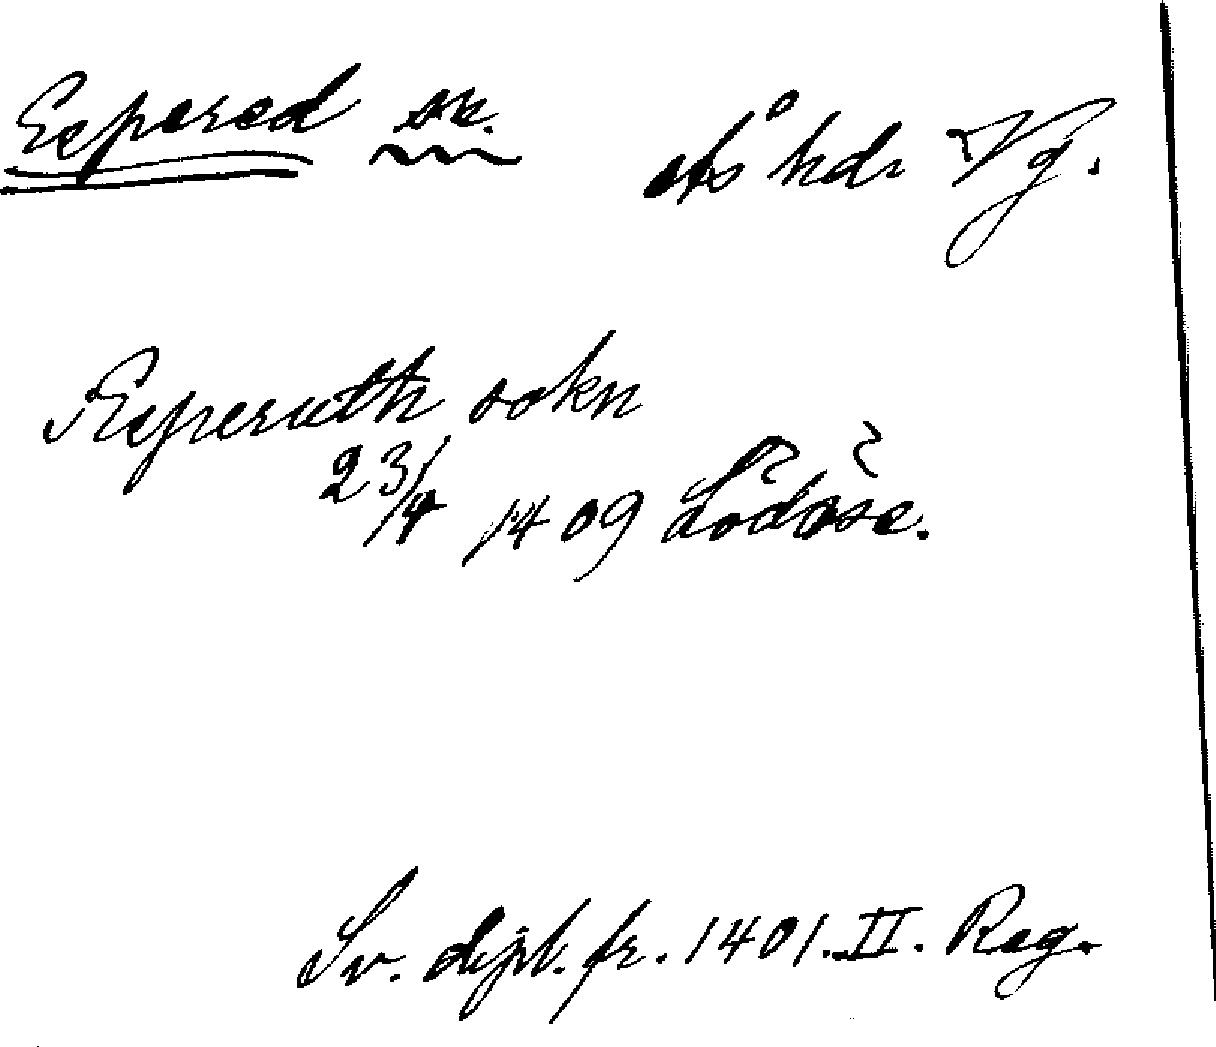 Espered sk. Ås hdr Vg.
Æsperuth sokn
23/4 1409 Lödöse.
Sv. dipl. fr. 1401. II. Reg.